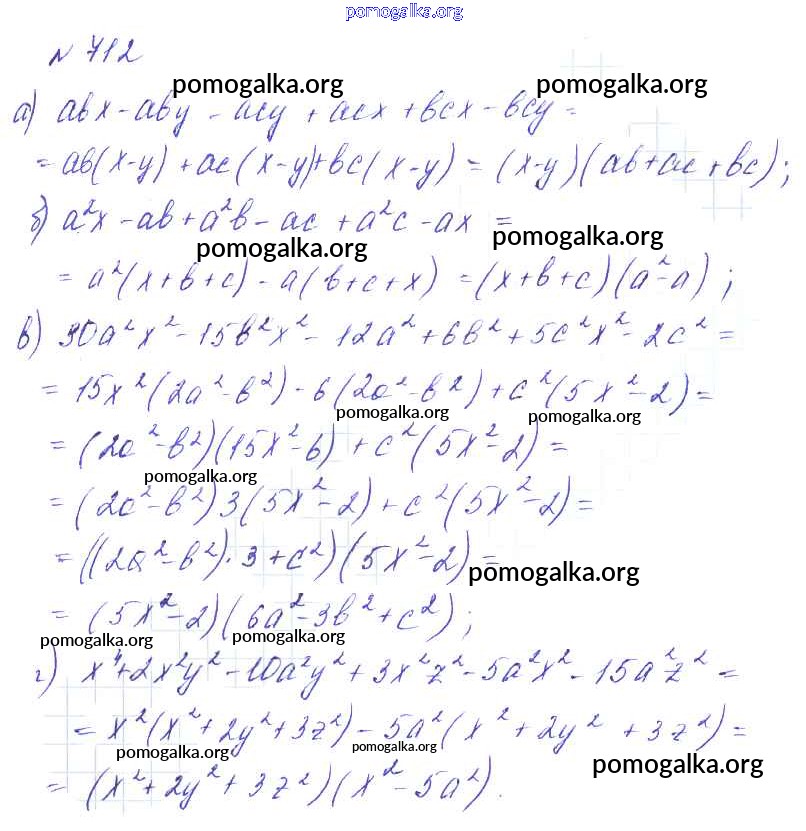 pomogalka.org
№ 712
pomogalka.org pomogalka.org
а) abx - aby - acy + acx + bcx - bcy =
= ab(x-y) + ac(x-y) + bc(x-y) = (x-y)(ab+ac+bc);
б) a²x - ab + a²b - ac + a²c - ax =
pomogalka.org pomogalka.org
= a²(x+b+c) - a(b+c+x) = (x+b+c)(a²-a);
в) 30a²x² - 15b²x² - 12a² + 6b² + 5c²x² - 2c² =
= 15x²(2a²-b²) - 6(2a²-b²) + c²(5x²-2) =
pomogalka.org pomogalka.org
= (2a²-b²)(15x²-6) + c²(5x²-2) =
pomogalka.org
= (2a²-b²)3(5x²-2) + c²(5x²-2) =
= ((2a²-b²)·3+c²)(5x²-2) =
pomogalka.org
= (5x²-2)(6a²-3b²+c²);
pomogalka.org pomogalka.org
г) x⁴+2x²y² - 10a²y² + 3x²z² - 5a²x² - 15a²z² =
= x²(x²+2y²+3z²) - 5a²(x²+2y²+3z²) =
pomogalka.org pomogalka.org pomogalka.org
= (x²+2y²+3z²)(x²-5a²).